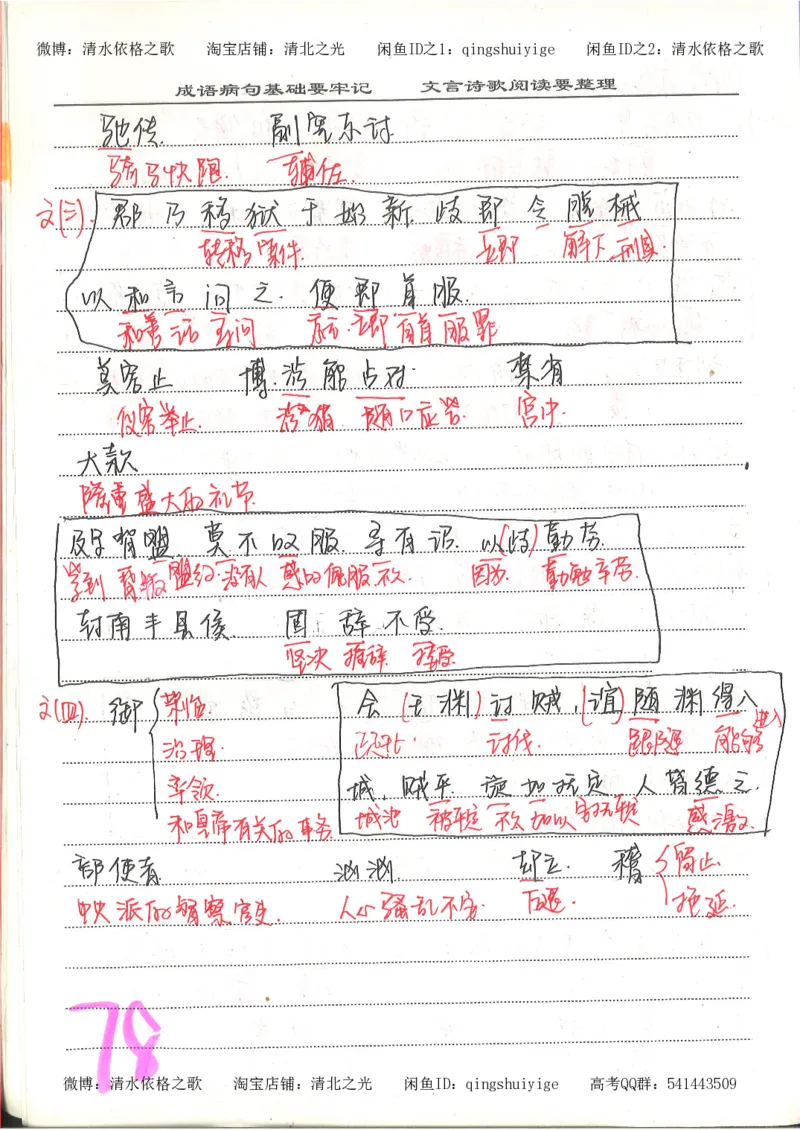 微博：清水依格之歌 淘宝店铺：清北之光 闲鱼ID之1：qingshuiyige 闲鱼ID之2：清水依格之歌
成语病句基础要牢记 文言诗歌阅读要整理
驰传 副宪东讨
骑马快跑. 辅佐.
文(三). 郡乃移狱于 新歧即令脱械
转移案件. 立即 解下刑具.
以和言问之. 便即首服.
和善 话 立即 自首服罪
容止 博涉 能占对. 禁省
仪容举止. 涉猎. 随口应答. 宫中.
大款
隆重盛大的礼节
背盟 莫不 服. 以(歧)勤劳.
背叛盟约.没有人 佩服 因为. 勤勉辛劳.
封南丰县侯 固辞不受.
坚决 推辞 接受
文(四). 御 驾临. 会(王渊)讨贼,(谊)随渊得入
治理. 讨伐. 跟随 能够 进入
率领. 城. 贼平. 旋加抚定. 人皆德之.
和皇帝有关的事务 城池 被平定 加以安抚平定 感激.
部使者 汹汹. 却立. 稽 停止.
中央派的督察官吏. 人心骚乱不安. 后退. 拖延.
78
微博：清水依格之歌 淘宝店铺：清北之光 闲鱼ID：qingshuiyige 高考QQ群：541443509